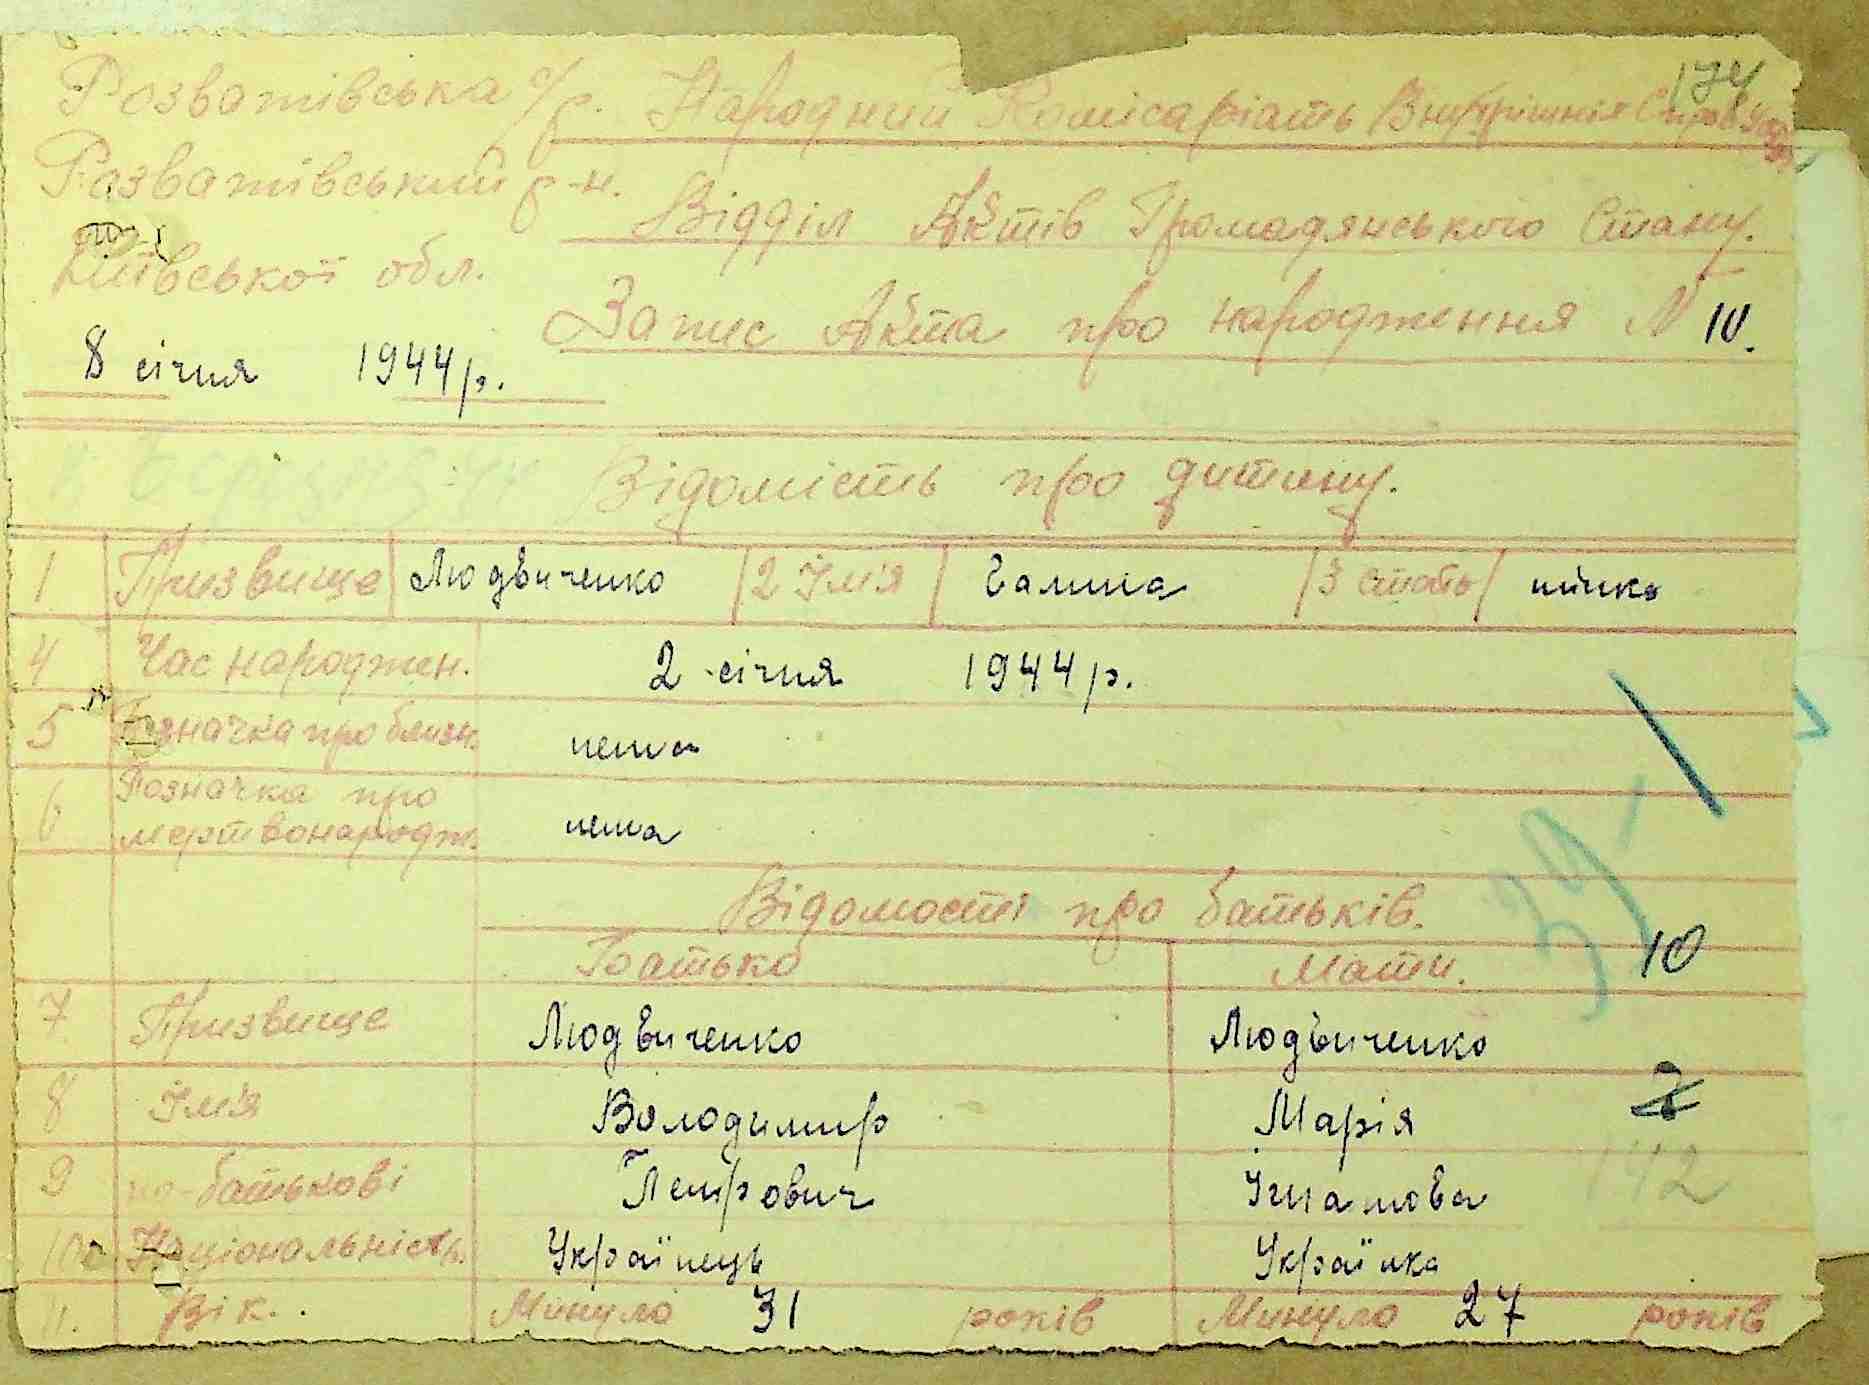 174
Розватівська с/р. Народний Комісаріать Внутрішніх Справ
Розватівський р-н. Відділ Актів Громадянського Стану.
Київської обл.
Запис Акта про народження N 10.
8 січня 1944 р.
Відомість про дитину.
1 Призвище Людвиченко 2 Ім'я Галина 3 Стать жінка
4 Час народжен. 2 січня 1944 р.
5 Позначка про близн. нема
6 Позначка про
мертвонародж. нема
39
Відомості про батьків.
Батько Мати. 10
7. Призвище Людвиченко Людвиченко
8 Ім'я Володимир Марія
9 по-батькові Петрович Ігнатова 142
10 Національність. Українець Українка
11. Вік. Минуло 31 років Минуло 27 років